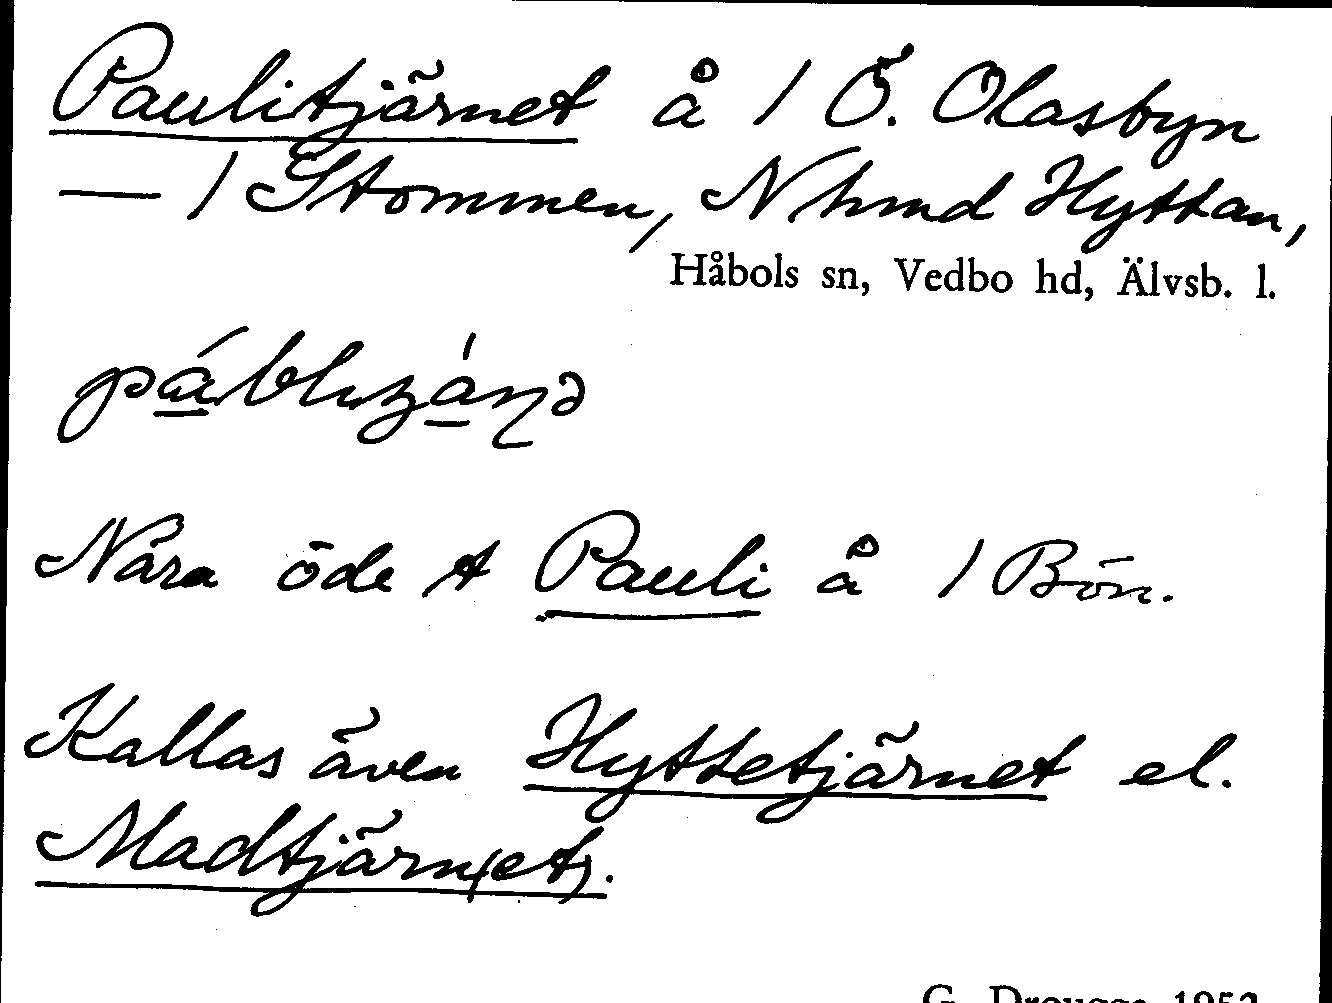 Paulitjärnet å 1 Ö. Olasbyn
— 1 Stommen, N hmd Hyttan,
Håbols sn, Vedbo hd, Älvsb. l.
Nära öde t Pauli å 1 Bön.
Kallas även Hyttetjärnet el.
Madtjärn(et).
G. Drougge 1952